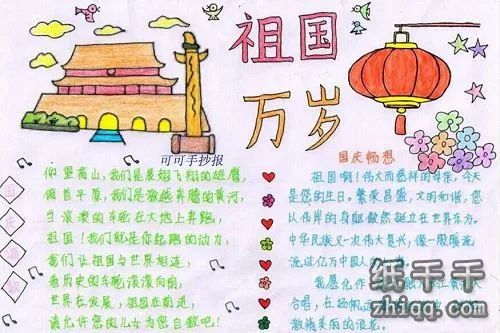 祖国
万岁
可可手抄报
国庆颂歌
你望高山,我们是展翅飞翔的雄鹰,
俯首平原,我们是激越奔腾的黄河,
当滚滚的车轮在大地上奔跑,
祖国!我们就是你起跑的动力,
我们让祖国与世界相连,
看历史的车轮滚滚向前,
世界在发展,祖国在前进,
请允许您的儿女为您自傲吧!
国庆畅想
祖国啊!伟大而慈祥的母亲,今天
是您的生日。繁荣昌盛,文明和谐,您
以伟岸的身躯傲然挺立在世界东方。
中华民族又一次伟大复兴,像一股暖流
流过亿万中国人的
我愿化作
合唱,在扬帆
激起美丽的浪花。
纸千千
zhiqq.com